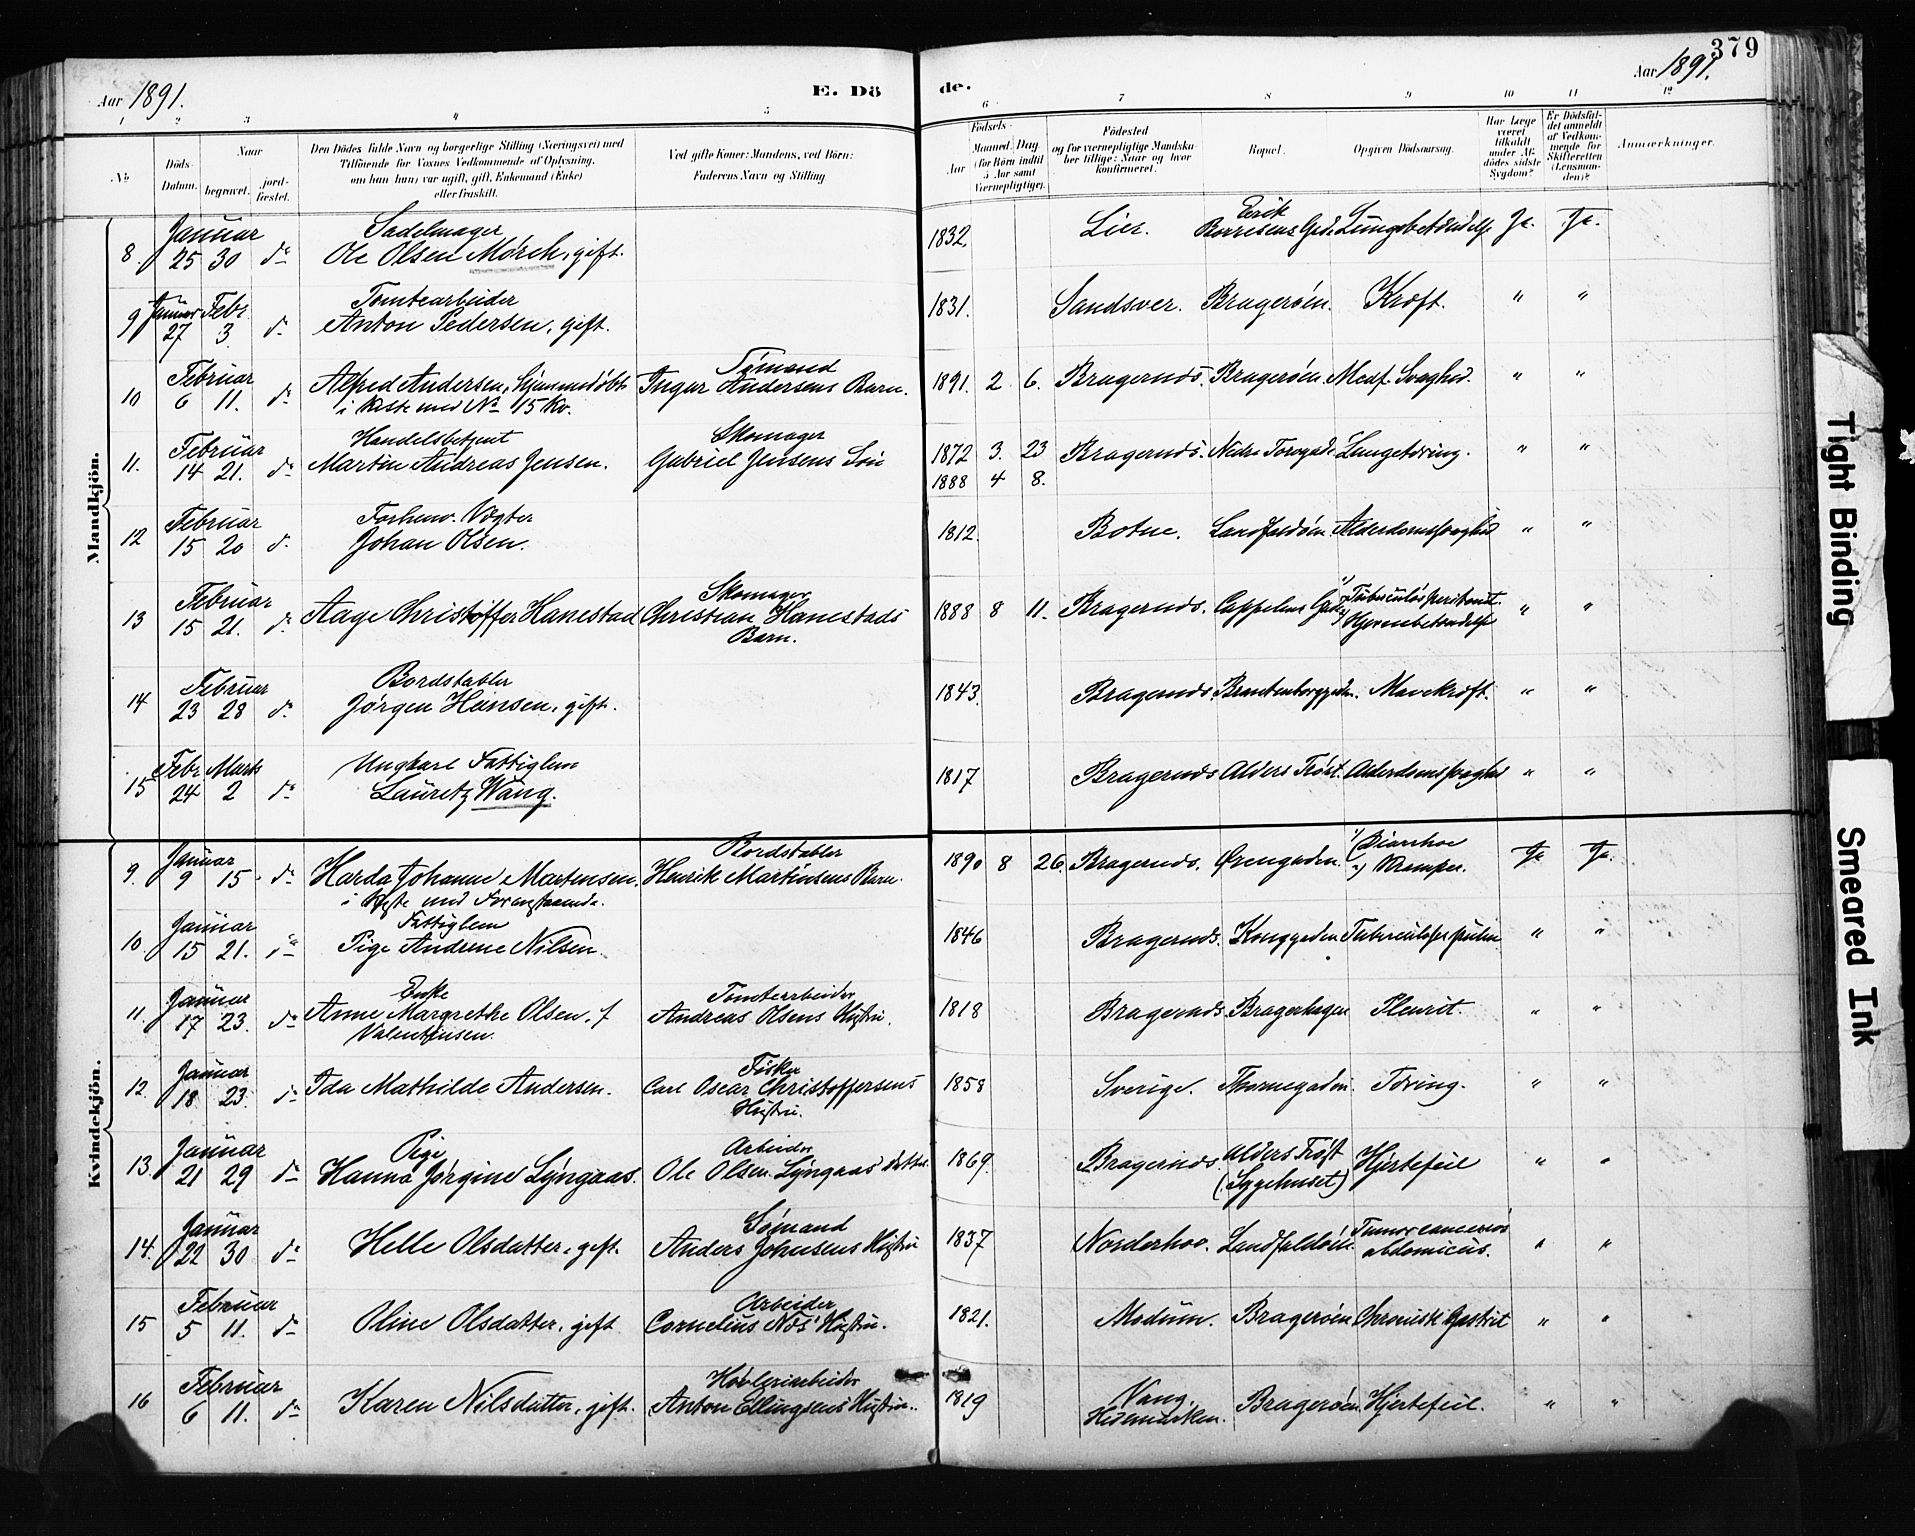 379
Aar 1891.
E. Dö
de.
Aar 1891.
1 2 3 4 5 6 7 8 9 10 11 12
No
Döds-Datum.
Naar
begravet.
jord-fæstet.
Den Dödes fulde Navn og borgerlige Stilling (Næringsvei) med
Tilföiende for Voxnes Vedkommende af Oplysning,
om han (hun) var ugift, gift, Enkemand (Enke)
eller fraskilt.
Ved gifte Koner: Mandens, ved Börn:
Faderens Navn og Stilling
Födsels-
Aar
Maaned. Dag
(for Börn indtil
5 Aar samt
Værnepligtige).
Födested
og for værnepligtige Mandska-
ber tillige: Naar og hvor
konfirmeret.
Bopæl.
Opgiven Dödsaarsag.
Har Læge
været
tilkaldt
under Af-
dödes sidste
Sygdom?
Er Dödsfal-
det anmeldt
af Vedkom-
mende for
Skifteretten
(Lensman-
den)?
Anmærkninger.
Mandkjön.
8. Januar 25 30 do Sadelmager
Ole Olsen Mörch, gift. 1832. Lier. Eerik Borresens Gde. Lungebetændelse Ja. Ja.
9 Januar 27 Febr. 3 do Tomtearbeider
Anton Pedersen, gift. 1831. Sandsver. Bragerøen. Kræft. " "
10 Februar 6 11. do Alfred Andersen, Hjemmedøbt
i Kiste med No 15 Kv. Sømand
Ingar Andersens Barn. 1891. 2 6. Bragernæs. Bragerøen. Medf. Svaghed. " "
11. Februar 14 21. do Handelsbetjent
Martin Andreas Jensen. Skomager
Gabriel Jensens Søn 1872 3. 23 Bragernæs. Nedre Torvgade Lungetæring. " "
1888 4 8.
12 Februar 15 20 do Forhenv. Vægter
Johan Olsen. 1812. Botne. Landfaldøen. Alderdomssvaghed " "
13 Februar 15 21. do Aage Christoffer Hanestad Skomager
Christian Hanestads
Barn. 1888 8 11. Bragernæs. Cappelens Gade Tuberculøs peritonit.
Hjernebetændelse " "
14 Februar 23 28 do Bordstabler
Jørgen Hansen, gift. 1843. Bragernæs Mavekræft. " "
15 Febr. 24 Marts 2 do Ungkarl Fattiglem
Lauretz Wang. 1817 Bragernæs Alders Trøst. Alderdomssvaghed " "
Kvindekjön.
9. Januar 9 15 do Harda Johanne Martinsen.
i Kiste med Foranstaaende. Bordstabler
Henrik Martinsens Barn. 1890 8 26. Bragernæs. Ørengaden. 1) Diarrhoe
2) Kramper. Ja Ja.
10. Januar 15 21. do Fattiglem
Pige Andrine Nilsen. 1846 Bragernæs. Konggaden Tuberculose pulm. " "
11. Januar 17 23. do Enke
Anne Margrethe Olsen, f
Valentinsen. Tomtearbeider
Andreas Olsens Hustru. 1818 Bragernæs Bragerhagen Pleurit. " "
12. Januar 18 23. do Ida Mathilde Andersen. Fisker
Carl Oscar Christoffersens
Hustru. 1858 Sverige. Thornegaden. Tæring. " "
13. Januar 21 29 do Pige
Hanna Jørgine Lyngaas. Arbeider
Ole Olsen Lyngaas Datter. 1869. Bragernæs. Alders Trøst
(Sygehuset) Hjertefeil " "
14. Januar 22 30 do Helle Olsdatter, gift. Sømand
Anders Johnsens Hustru 1837 Norderhov. Landfaldøen. Tumor cancerøs
abdomicus. " "
15 Februar 5 11. do Oline Olsdatter, gift Arbeider
Cornelius Næs' Hustru. 1821. Modum. Bragerøen Chronisk Gastrit " "
16 Februar 6 11. do Karen Nilsdatter, gift. Høvleriarbeider
Anton Ellingsens Hustru. 1819 Vang.
Hedemarken. Bragerøen Hjertefeil. " "
Tight Binding
Smeared Ink